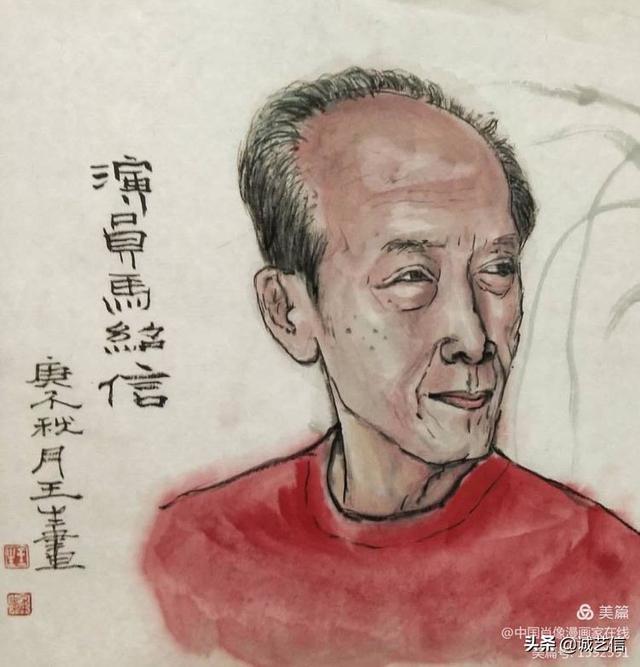 演員馬紹信
庚子秋月王生畫
美篇
@中国肖像漫画家在线
头条 @诚艺信